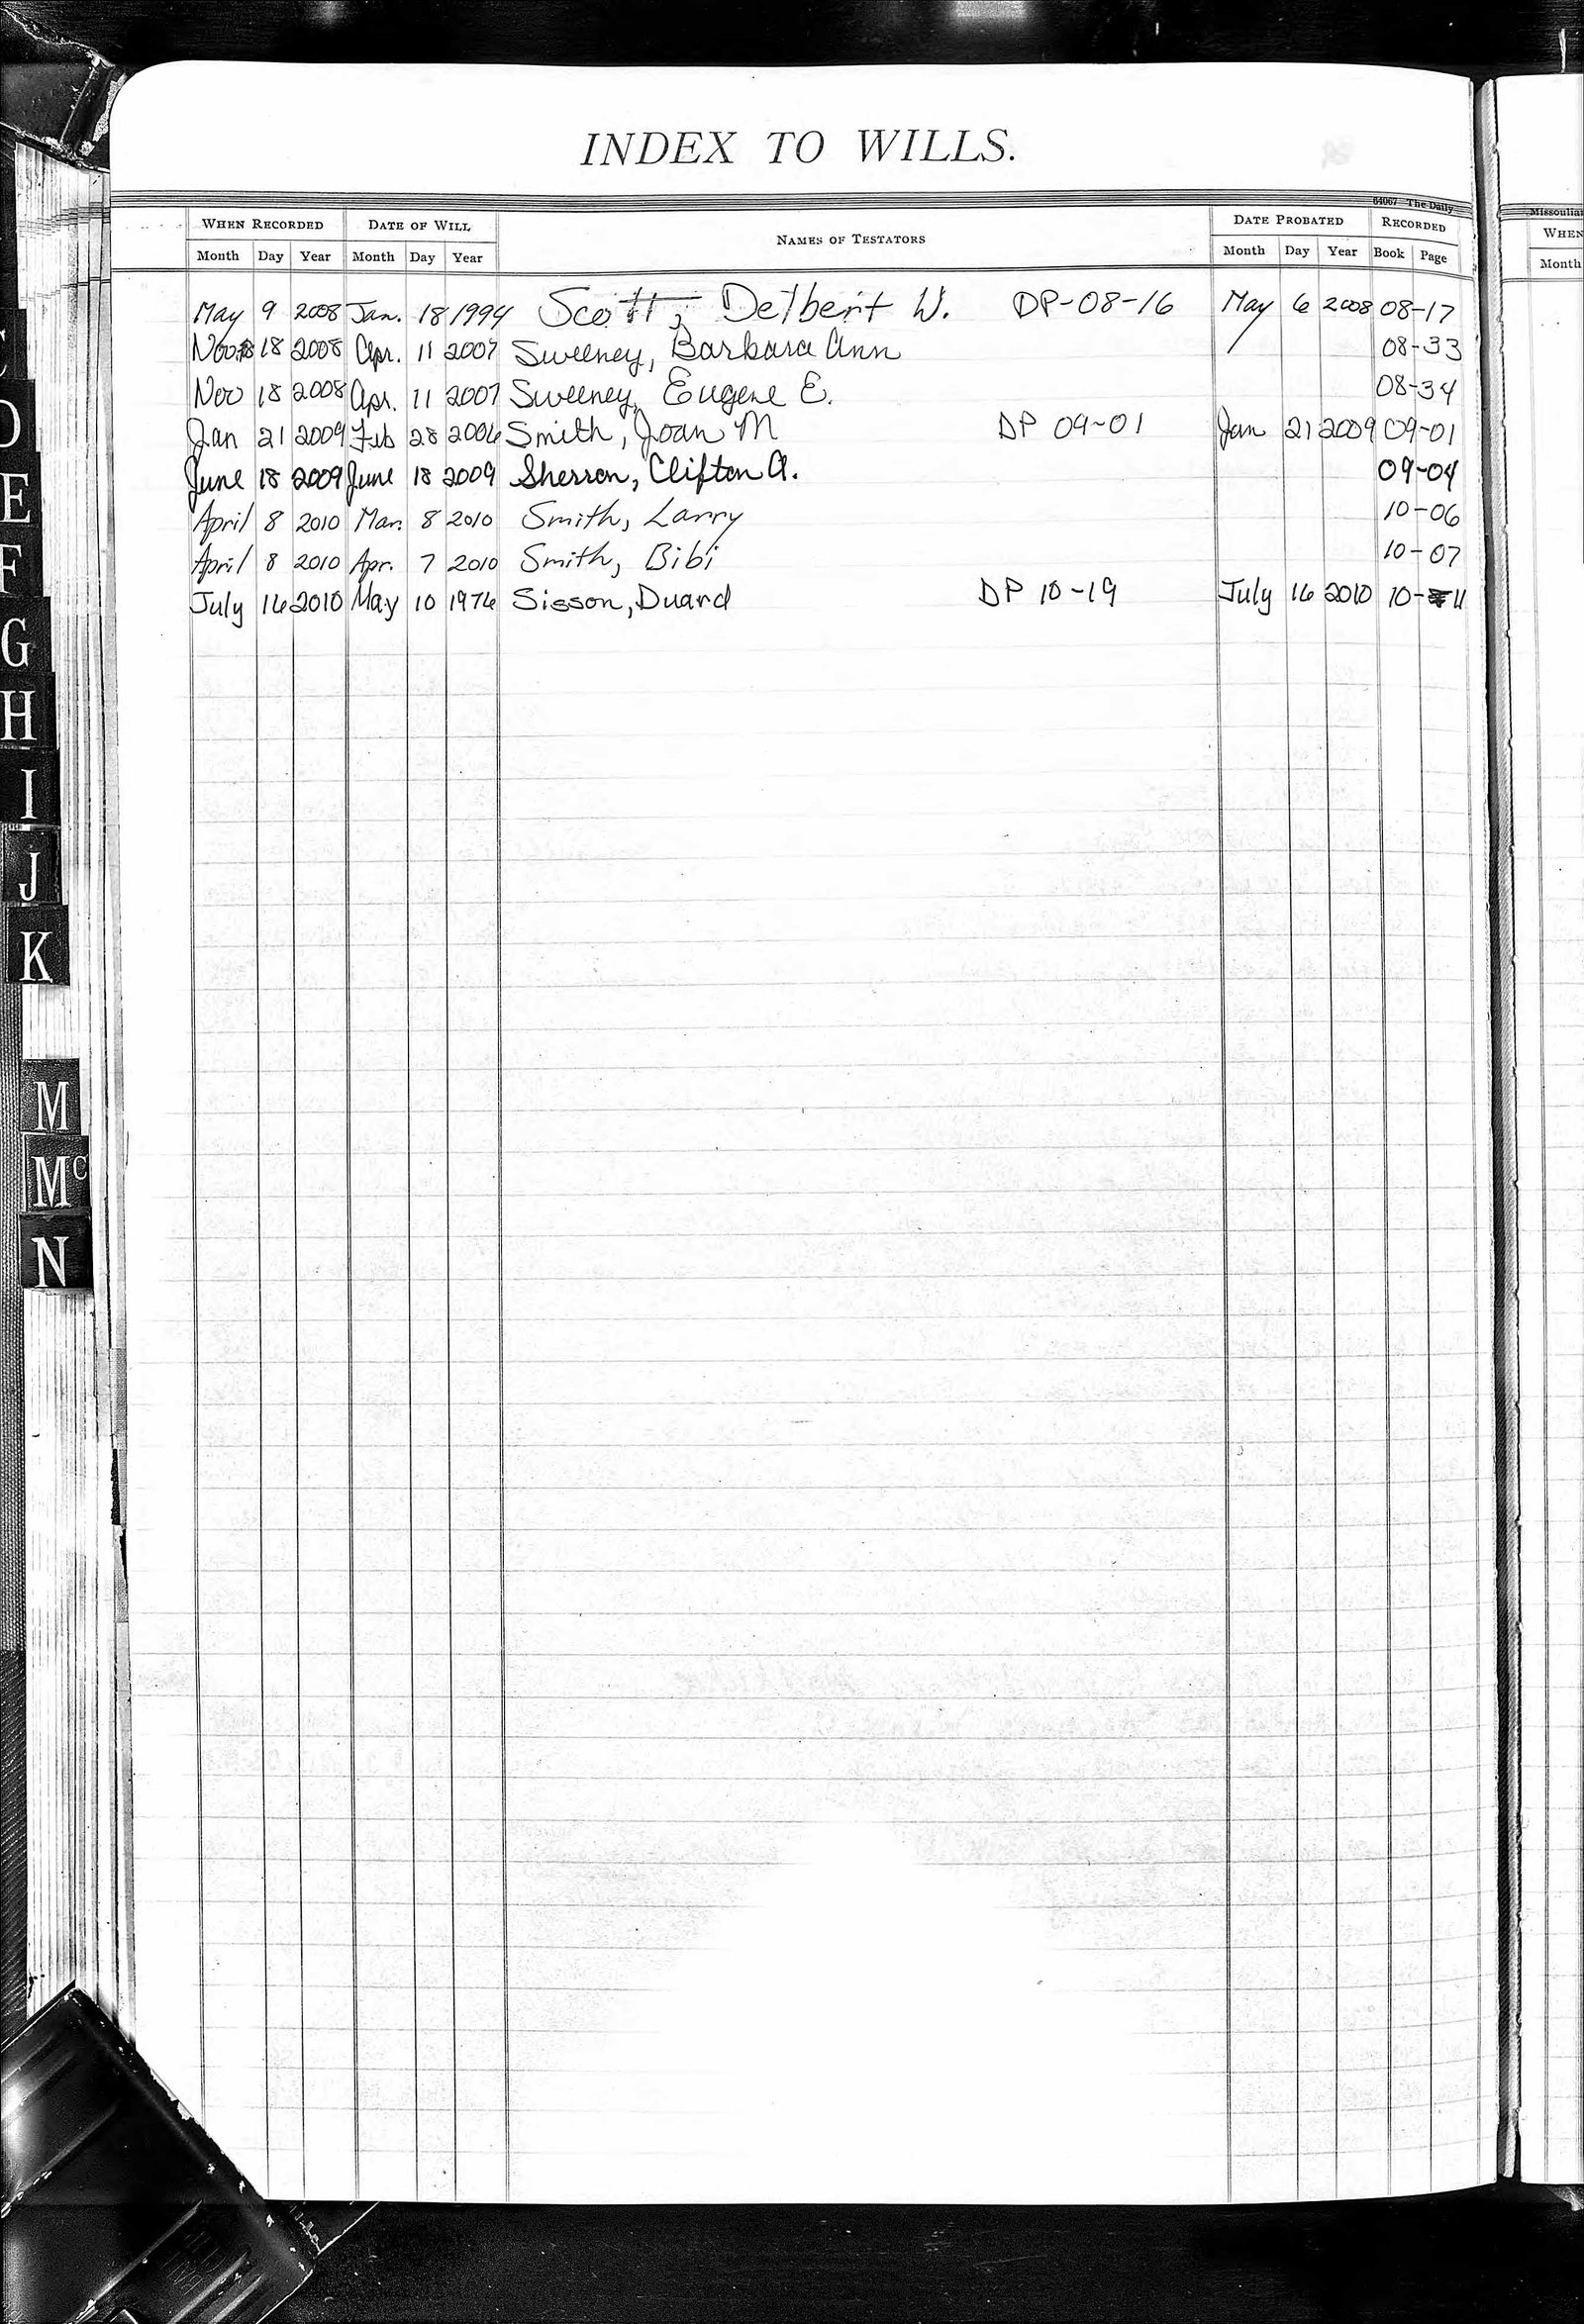 INDEX TO WILLS.
64067 The Daily
Missoulian
WHEN RECORDED DATE OF WILL NAMES OF TESTATORS DATE PROBATED RECORDED
Month Day Year Month Day Year Month Day Year Book Page
WHEN
Month
May 9 2008 Jan. 18 1994 Scott, Delbert W. DP-08-16 May 6 2008 08-17
Nov. 18 2008 Apr. 11 2007 Sweeney, Barbara Ann 08-33
Nov 18 2008 Apr. 11 2007 Sweeney, Eugene E. 08-34
Jan 21 2009 Feb 28 2006 Smith, Joan M DP 09-01 Jan 21 2009 09-01
June 18 2009 June 18 2009 Sherron, Clifton A. 09-04
April 8 2010 Mar. 8 2010 Smith, Larry 10-06
April 8 2010 Apr. 7 2010 Smith, Bibi 10-07
July 16 2010 May 10 1976 Sisson, Duard DP 10-19 July 16 2010 10-11
D
E
F
G
H
I
J
K
M
Mc
N